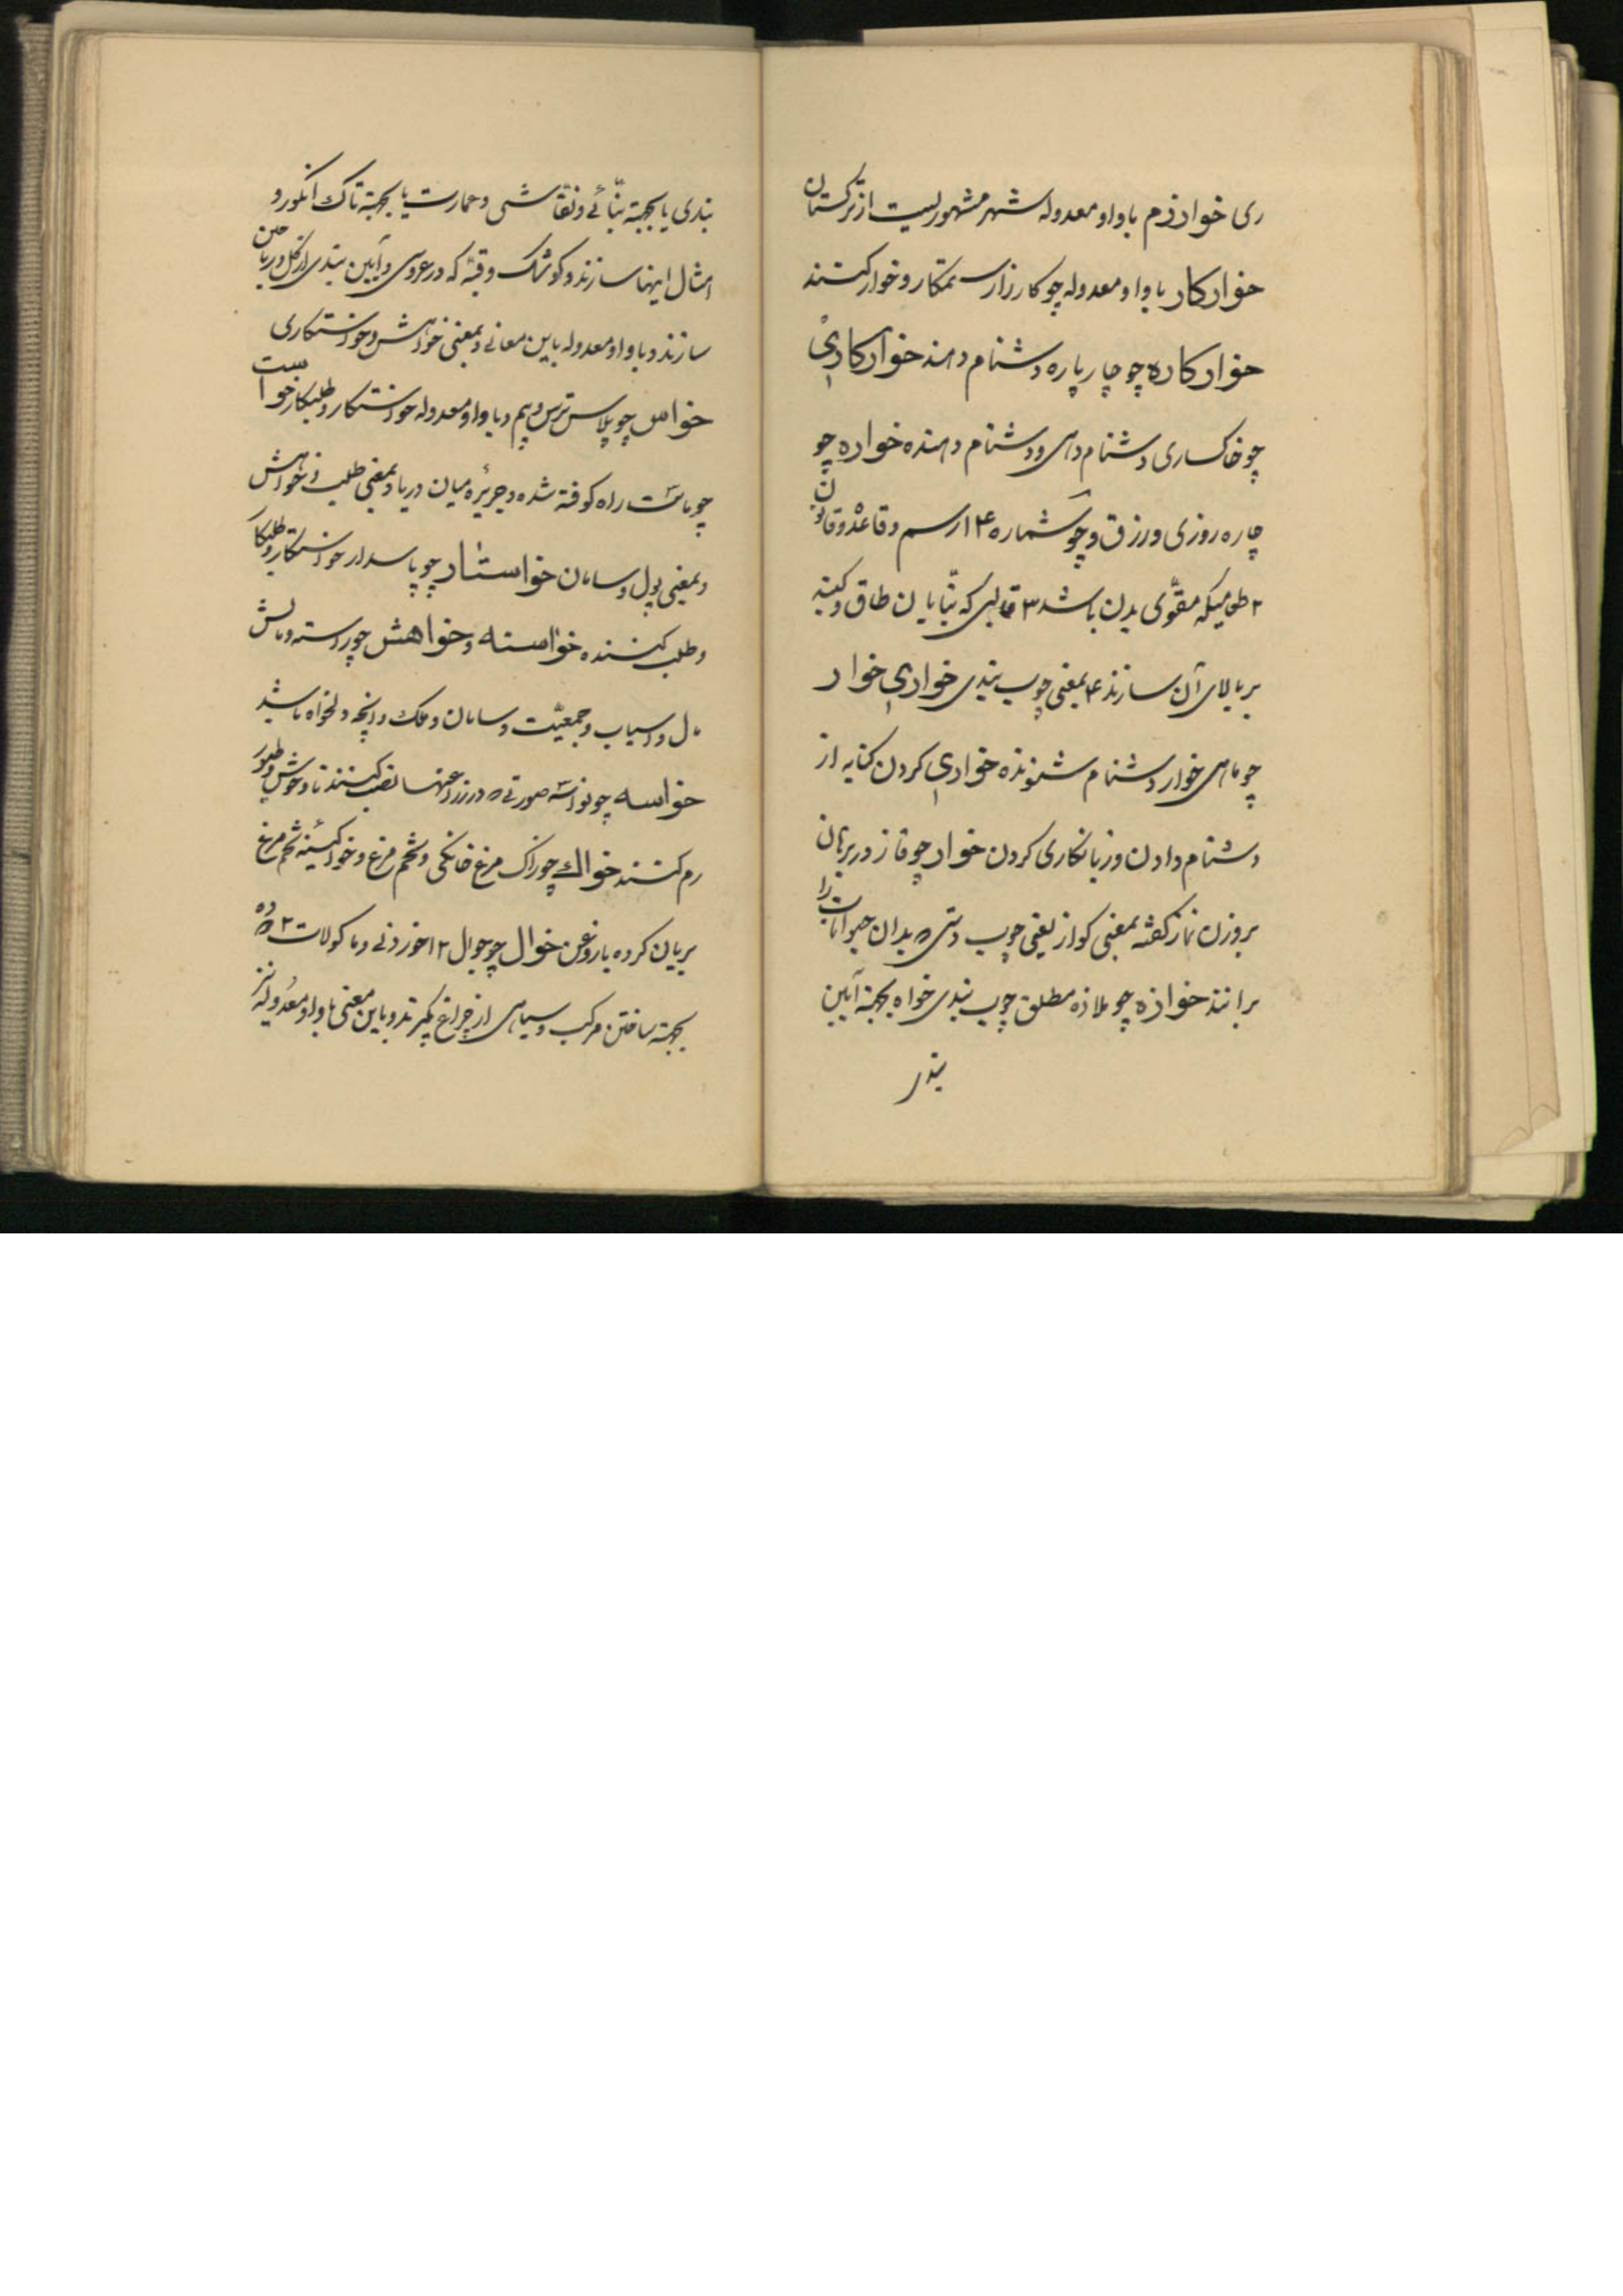 ری خوارزم باواو معدوله شهر مشهوریست از ترکستان
خوارکار باواو معدوله چو کارزار ستمکار و خوار کننده
خوارکاره چو چارپاره دشنام دهنده خوارکاری
چو خاکساری دشنام دهی و دشنام دهنده خواره چو
چاره روزی و رزق و چو شماره ۱۴ رسم و قاعده و قانون
۲ طعامیکه مقوّی بدن باشد ۳ قالبی که بنّایان طاق و گنبد
بربالای آن سازند ۴ بمعنی چوب بندی خواری خوار
چو ماهی خوار دشنام شنونده خواری کردن کنایه از
دشنام دادن و زیانکاری کردن خواز چو قاز در برهان
بروزن نماز گفته بمعنی کواز یعنی چوب دستی که بدان حیوانات را
برانند خوازه چو ملازه مطلق چوب بندی خواه بجهة آیین
بندی
بندی یا بجهة بنّائی و نقّاشی و عمارت یا بجهة تاک انگور و
امثال اینها سازند و کوشک و قبّه که در عروسی و آیین بندی از گل و ریاحین
سازند و باواو معدوله باین معانی و بمعنی خواهش و خواستکاری
خواس چو پلاس ترس و بیم و باواو معدوله خواستکار و طلبکار خواست
چو ماست راه کوفته شده و جزیره میان دریا و بمعنی طلب و خواهش
و بمعنی پول و سامان خواستار چو پاسدار خواستکار و طلبکار
و طلب کننده خواسته و خواهش چو راسته و مالش
مال و اسباب و جمعیّت و سامان و ملک و آنچه دلخواه باشد
خواسه چو نواسه صورتی که در زراعتها نصب کنند تا وحوش و طیور
رم کنند خواک چو راک مرغ خانگی و تخم مرغ و خواکینه تخم مرغ
بریان کرده با روغن خوال چو جوال ۱۲ خوردنی و ماکولات ۲ دوده که
بجهة ساختن مرکب و سیاهی از چراغ گیرند و باین معنی باواو معدوله نیز